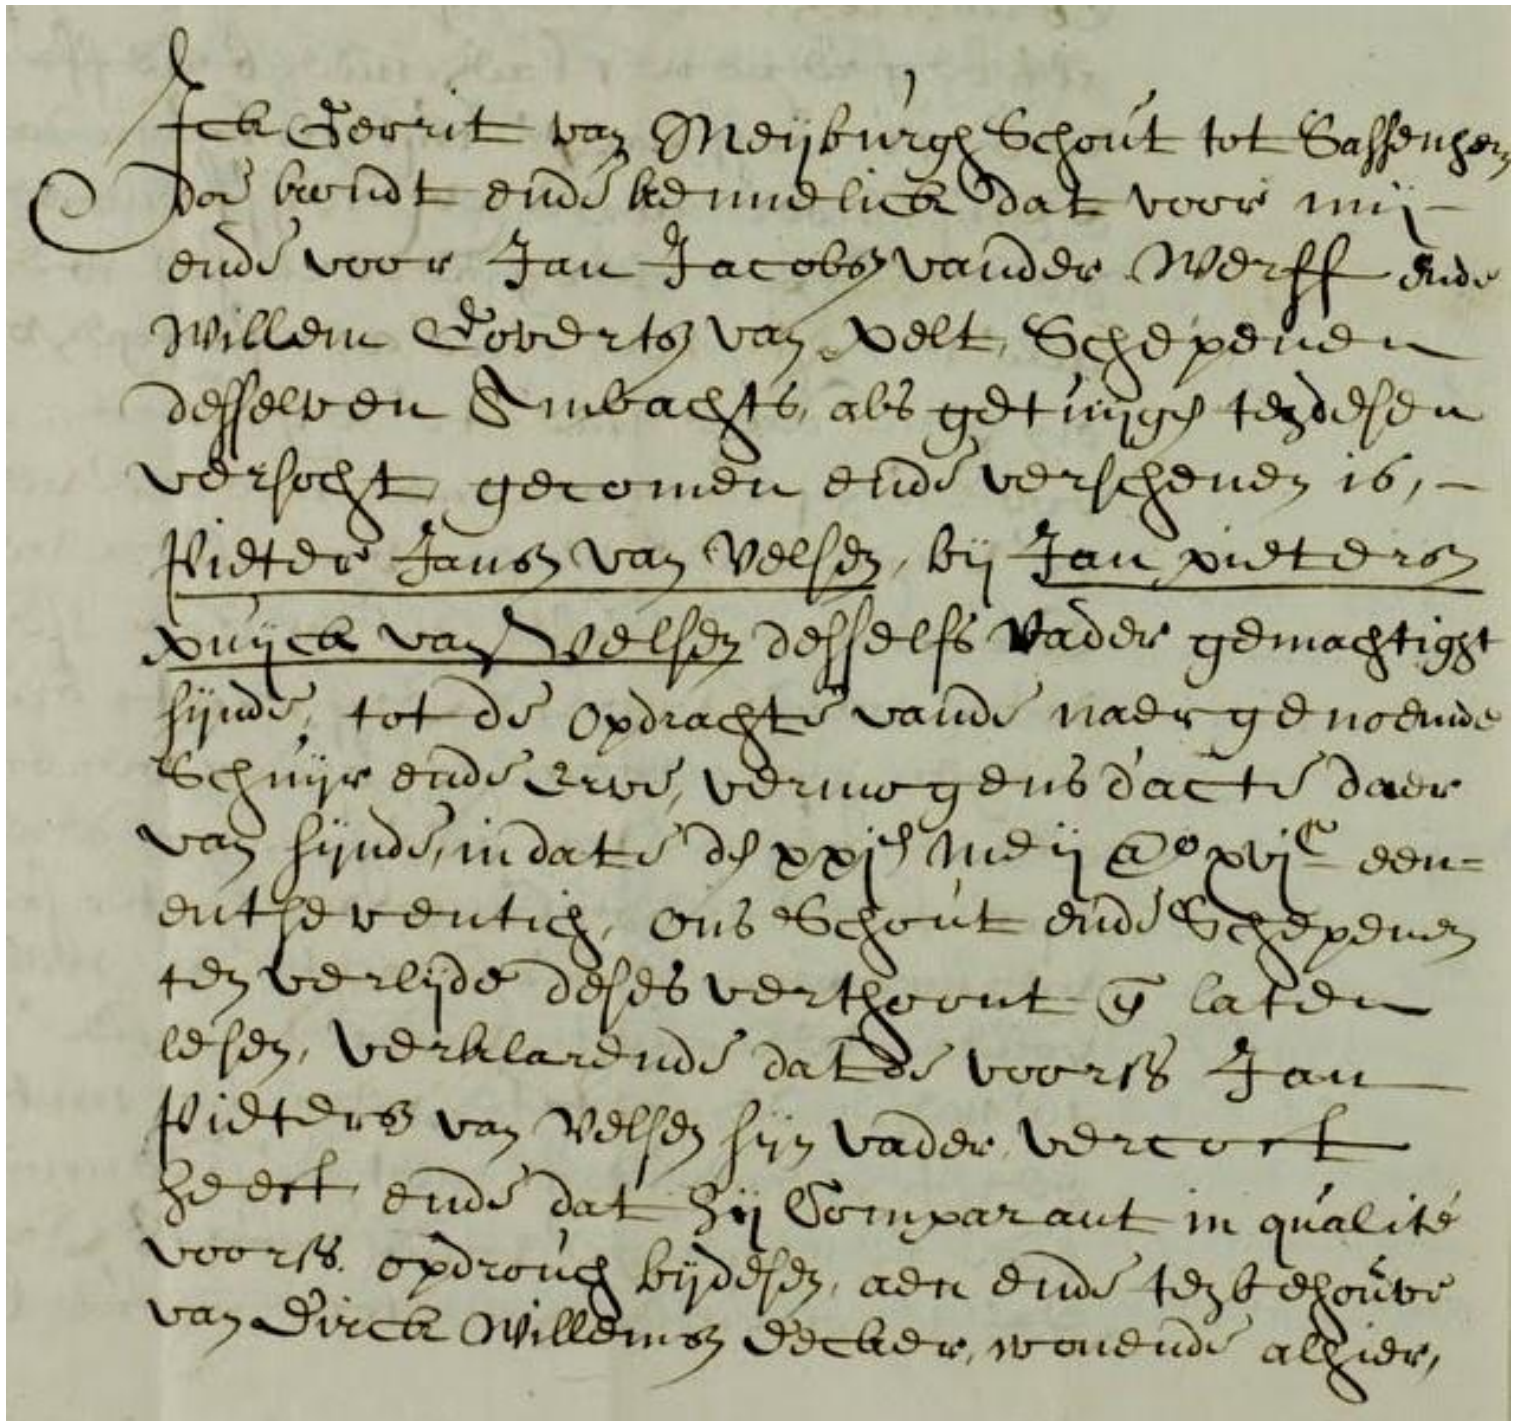 Ick Gerrit van Meijburgh Schout tot Sassenhem
doe kondt ende kennelick dat voor mij -
ende voor Jan Jacobsz vander Werff ende
Willem Govertsz van Pelt, Schepenen
desselven Ambachts, als getuijgen ten desen
versocht, gecomen ende verschenen is, -
Pieter Jansz van Velsen, bij Jan pietersz
puijck van Velsen desselfs vader gemachtight
sijnde, tot de opdrachte vande naergenoemde
Schuijr ende Erve, vermogens d'acte daer
van sijnde, in date den xxjen meij ao xvjc een=
entseventich, ons Schout ende Schepenen
ten verlijde deses verthoont en laten
lesen, verklarende dat de voorss Jan
Pietersz van Velsen sijn vader vercoft
heeft ende dat hij Comparant in qualite
voorss. opdrouch bij desen, aen ende ten behouve
van Dirck Willemsz decker, wonende alhier,